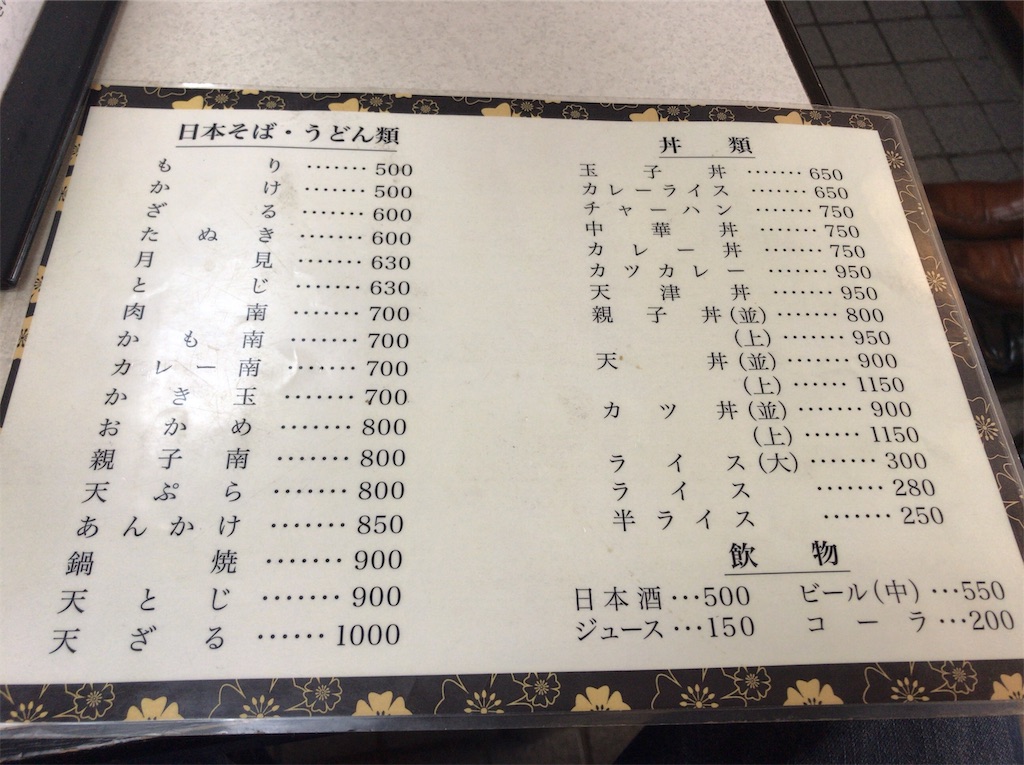 日本そば・うどん類
もり ······· 500
かけ ······· 500
ざる ······· 600
たぬき ······· 600
月見 ······· 630
とじ ······· 630
肉南 ······· 700
かも南 ······· 700
カレー南 ······· 700
かき玉 ······· 700
おかめ ······· 800
親子南 ······· 800
天ぷら ······· 800
あんかけ ······· 850
鍋焼 ······· 900
天とじ ······· 900
天ざる ······ 1000
丼類
玉子丼 ······· 650
カレーライス ······· 650
チャーハン ······· 750
中華丼 ······· 750
カレー丼 ······· 750
カツカレー ······· 950
天津丼 ······· 950
親子丼(並) ······· 800
(上) ······· 950
天丼(並) ······· 900
(上) ······ 1150
カツ丼(並) ······· 900
(上) ······ 1150
ライス(大) ······· 300
ライス ······· 280
半ライス ······· 250
飲物
日本酒 ··· 500 ビール(中) ··· 550
ジュース ··· 150 コーラ ··· 200